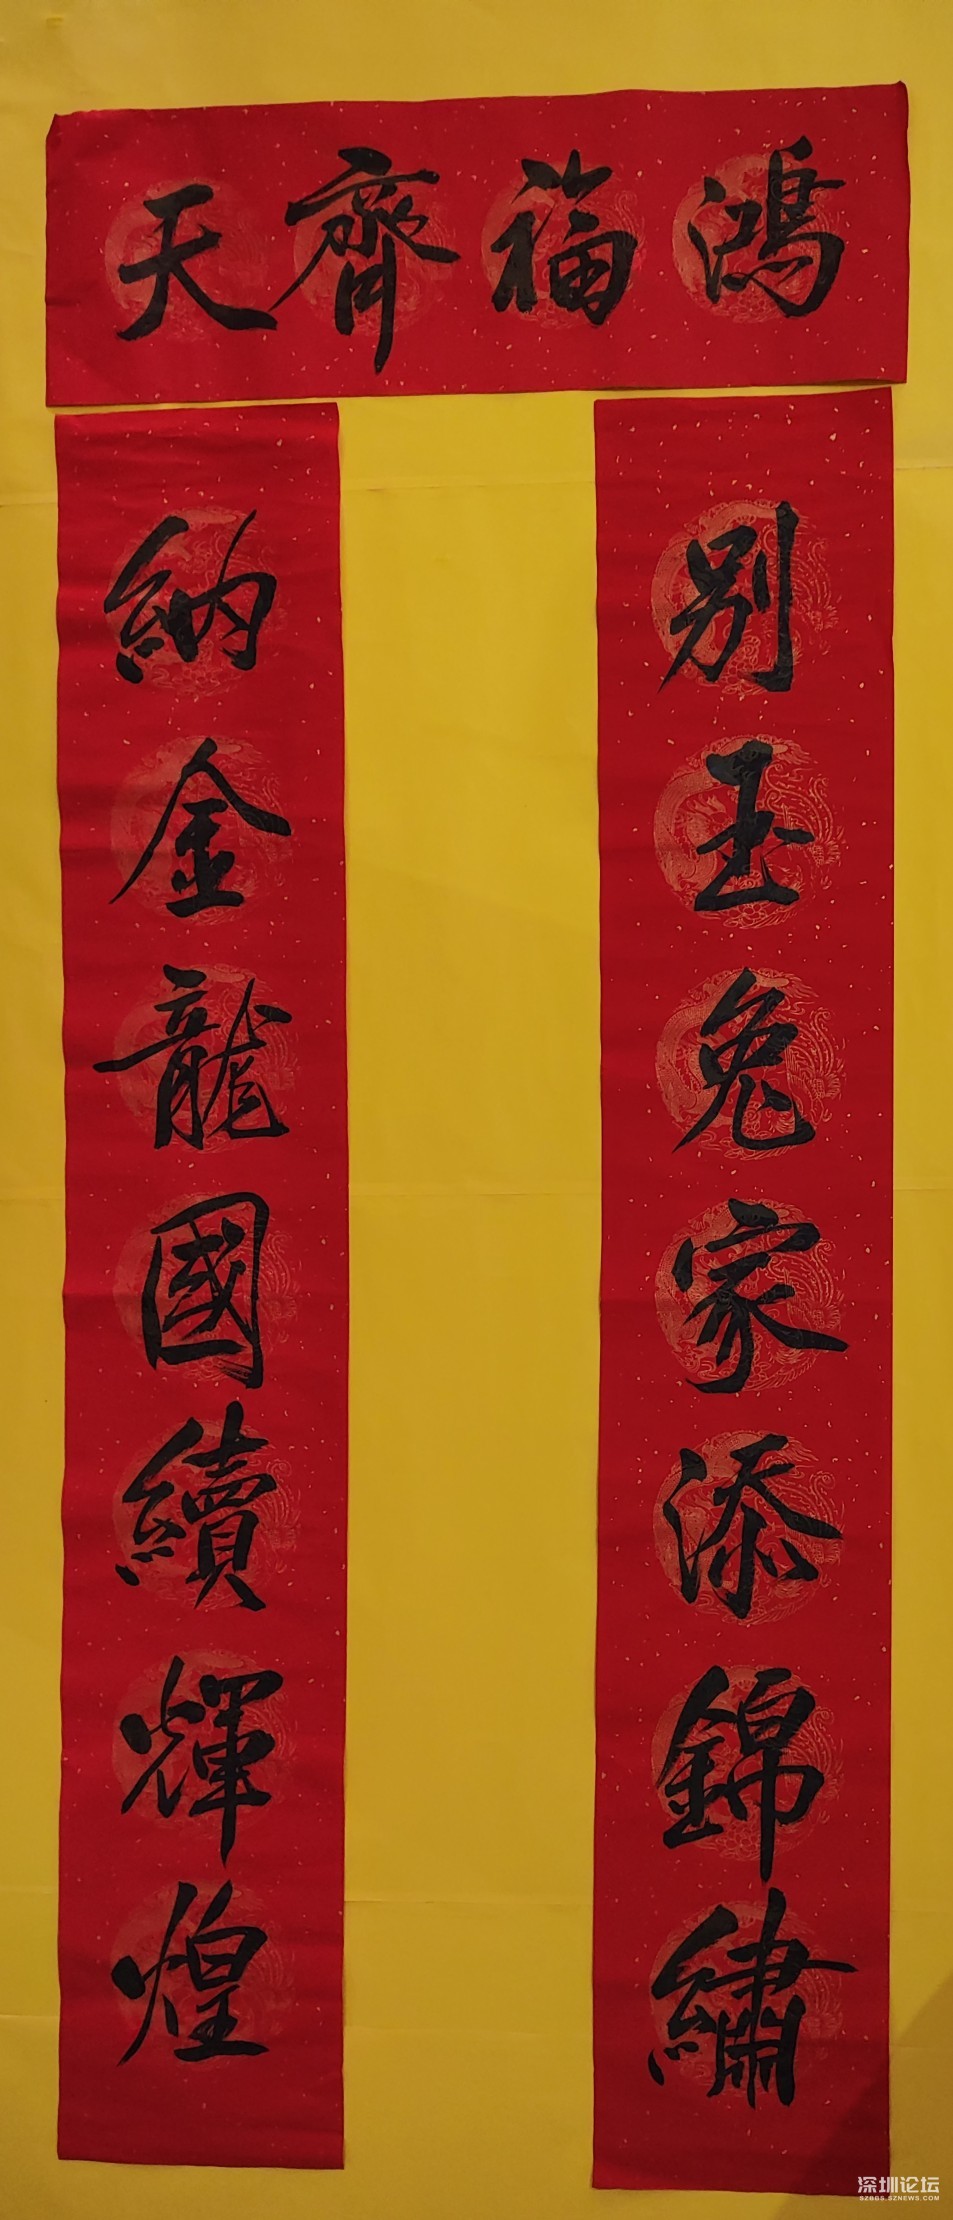 鴻福齊天
别玉兔家添錦繡
納金龍國續輝煌
深圳论坛
SZBBS.SZNEWS.COM